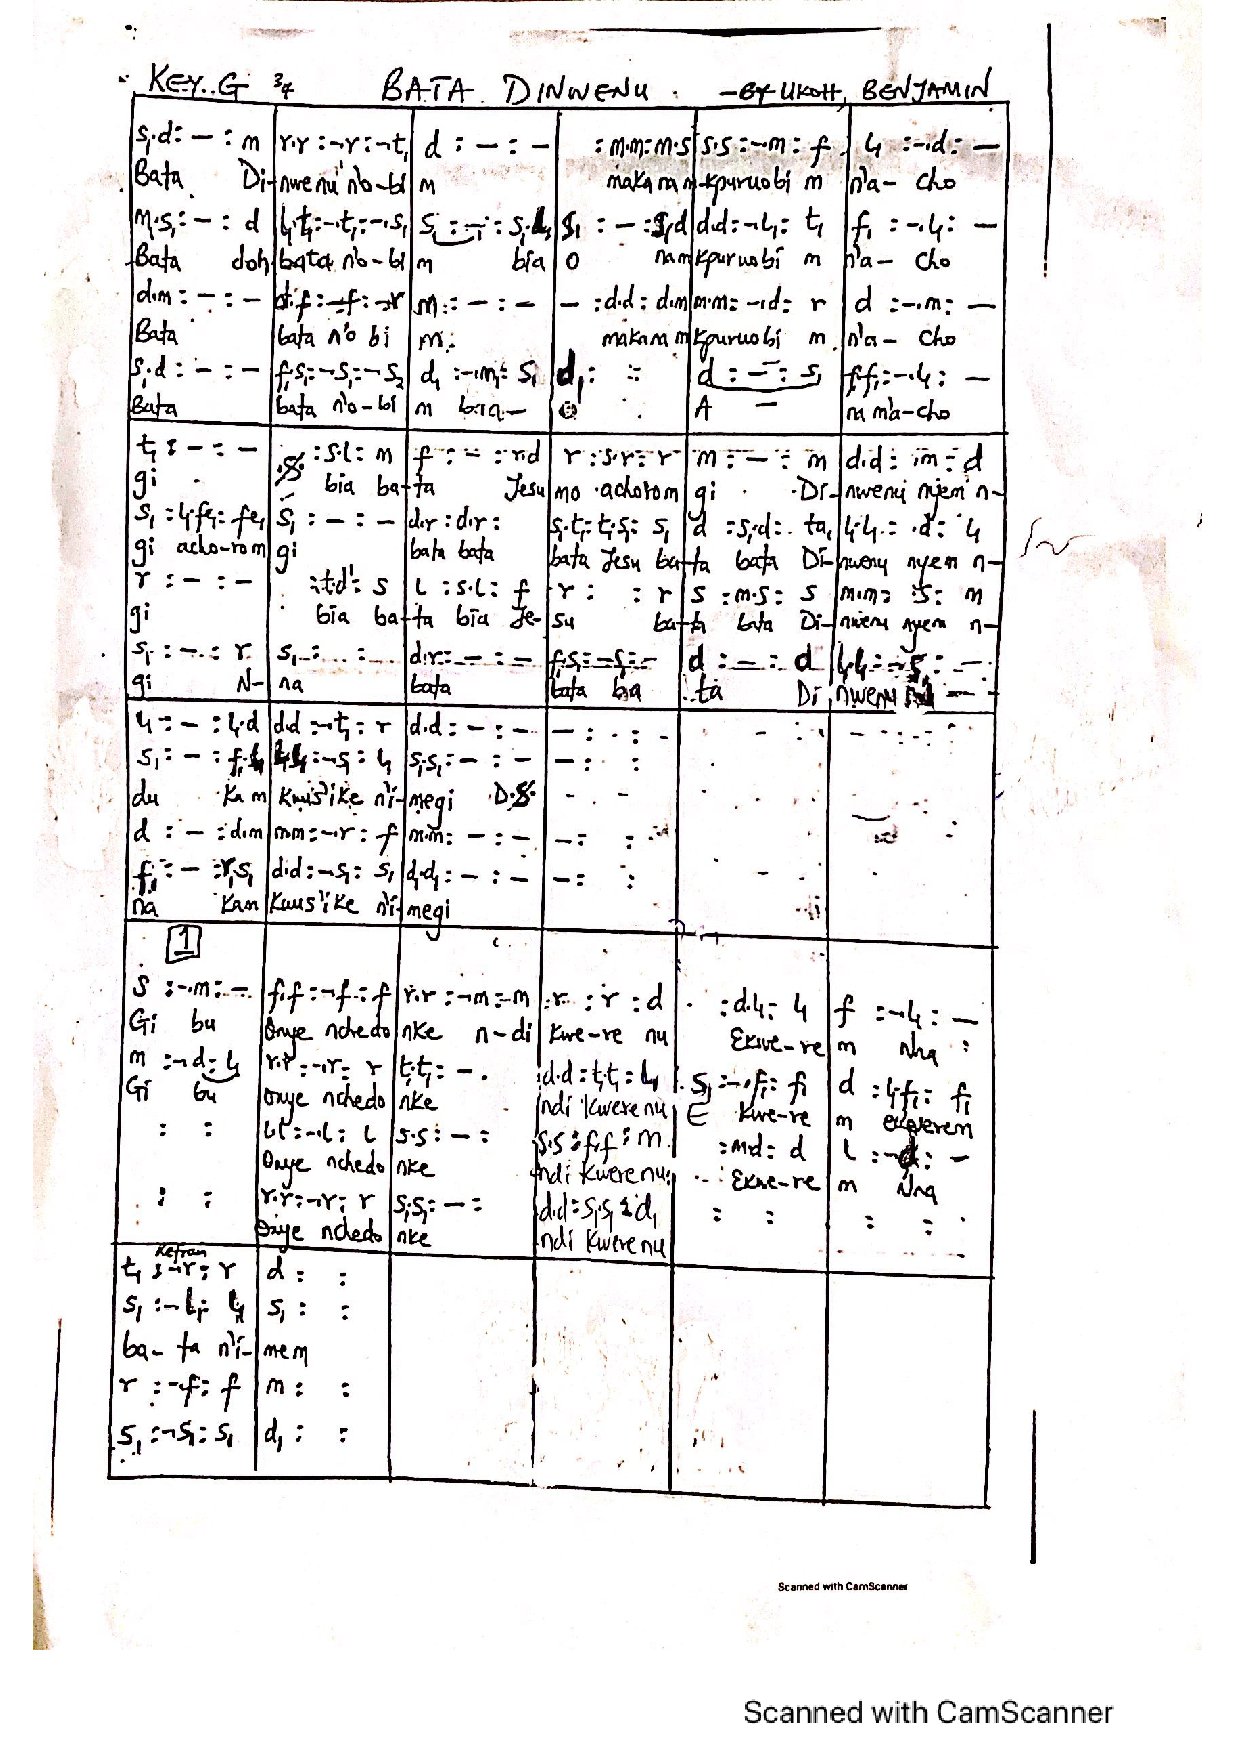 KEY..G 3/4 BATA DINWENU . -BY UKOH, BENJAMIN
s,.d : – : m | r.r : -.r : -.t, | d : – : – | : m.m : m.s | s.s : -.m : f | l, : -.d : –
Bata Di- nwenu n'o-bi m maka na m- kpuruobi m n'a- cho
m.s, : – : d | l,.t, : -.t, : -.s, | s, : – : s,.l, | s, : – : s,.d | d.d : -.l, : t, | f, : -.l, : –
Bata doh bata n'o-bi m bia O nam kpuruobi m n'a- cho
d.m : – : – | d.f : -.f : -.r | m : – : – | – : d.d : d.m | m.m : -.d : r | d : -.m : –
Bata bata n'o bi m. maka na m kpuruobi m n'a- cho
s,.d : – : – | f,.s, : -.s, : -.s₂ | d, : -.m, : s, | d, : : | d : – : s, | f,.f, : -.l, : –
Bata bata n'o-bi m bia- A – na m'a-cho
t, : – : – | .S. : s.l : m | f : – : r.d | r : s.r : r | m : – : m | d.d : .m : d
gi bia ba-ta Jesu mo achorom gi Di- nwenu nyem n-
s, : l,.fe, : fe, | s, : – : – | d.r : d.r : | s,.t, : t,.s, : s, | d : s,.d : ta, | l,.l, : .d : l,
gi acho-rom gi bata bata bata Jesu ba-ta bata Di- nwenu nyem n-
r : – : – | : t.d' : s | l : s.l : f | r : : r | s : m.s : s | m.m : .s : m
gi bia ba-ta bia Je- su ba-ta bata Di- nwenu nyem n-
s, : – : r | s, : : | d.r : – : – | f,.s, : -.s, : – | d : – : d | l,.l, : -.s, : –
gi N- na bata bata ba ta Di nwenu
l, : – : l,.d | d.d : -.t, : r | d.d : – : – | – : :
s, : – : f,.l, | l,.l, : -.s, : l, | s,.s, : – : – | – : :
du kam kwus'ike n'i- megi D.S.
d : – : d.m | m.m : -.r : f | m.m : – : – | – : :
f, : – : r,.s, | d.d : -.s, : s, | d,.d, : – : – | – : :
na Kan Kwus'ike n'i- megi
1
s : -.m : – | f.f : -.f : f | r.r : -.m : -.m | r : r : d | : d.l, : l, | f : -.l, : –
Gi bu Onye nchedo nke n-di kwe-re nu Ekwe-re m Nna
m : -.d : l, | r.r : -.r : r | t,.t, : – | d.d : t,.t, : l, | s, : -.f, : f, | d : l,.f, : f,
Gi bu Onye nchedo nke ndi Kwerenu E kwe-re m ekwerem
: : | l.l : -.l : l | s.s : – : | s.s : f.f : m | : m.d : d | l : -.d : –
Onye nchedo nke ndi Kwerenu Ekwe-re m Nna
: : | r.r : -.r : r | s,.s, : – : | d.d : s,.s, : d, | : : | : :
Onye nchedo nke ndi Kwerenu
Refran
t, : -.r : r | d : :
s, : -.l, : l, | s, : :
ba- ta n'i- mem
r : -.f : f | m : :
s, : -.s, : s, | d, : :
Scanned with CamScanner
Scanned with CamScanner